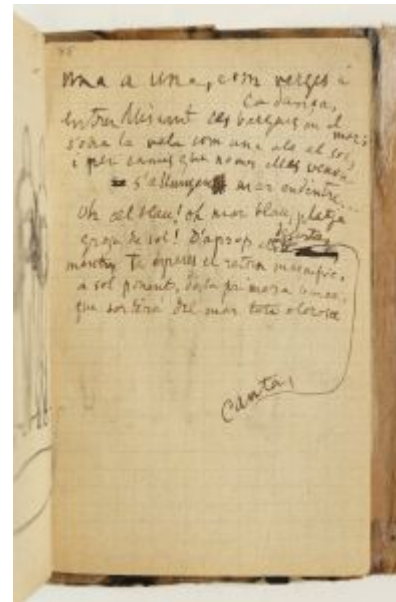 Una a una, com verges a
la dansa,
entren lliscant les barques en el mar;
s'obra la vela com una ala al sol,
i per camins que només elles veuen
s'allunyen mar endintre...
Oh cel blau! oh mar blau, platja
deserta,
groga de sol! D'aprop el
mentres tu esperes el retorn magnífic,
a sol ponent, de la primera barca,
que sortirà del mar tota olorosa
canta,